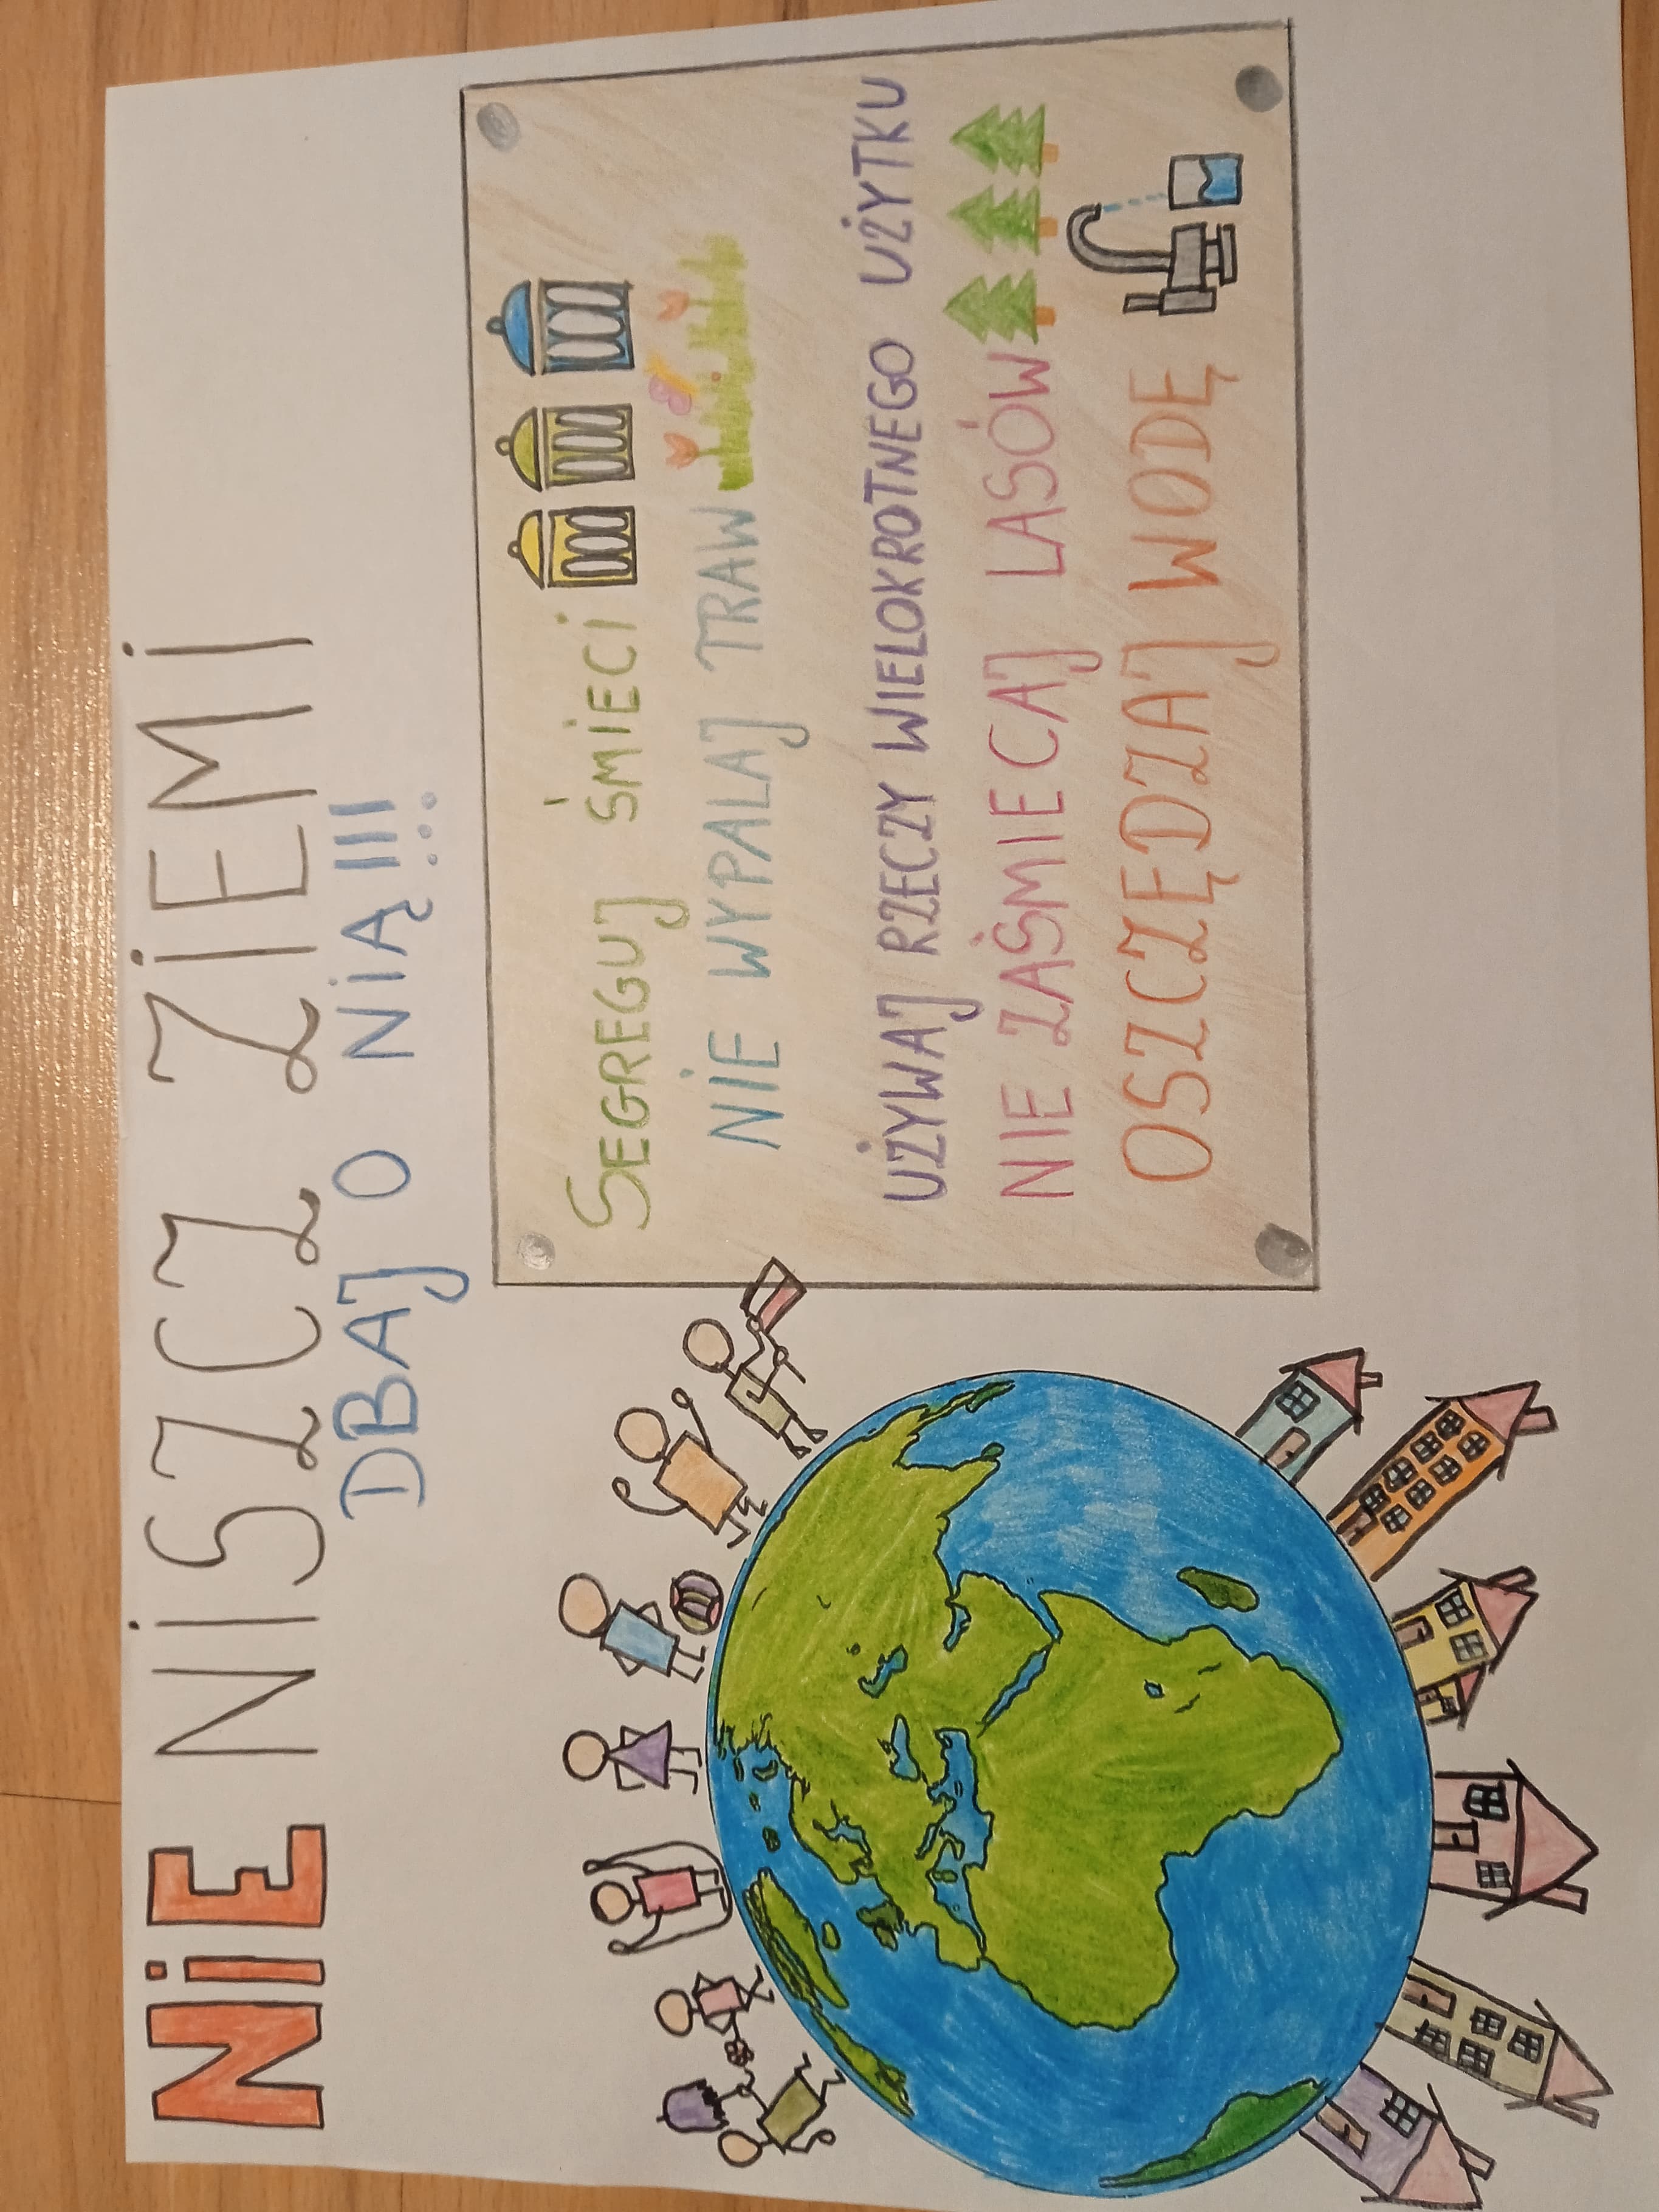 NiE NiSZCZ ZiEMi
DBAJ O NiĄ!!!
SEGREGUJ ŚMiECi
NiE WYPALAJ TRAW
UŻYWAJ RZECZY WIELOKROTNEGO UŻYTKU
NIE ZAŚMIECAJ LASÓW
OSZCZĘDZAJ WODĘ